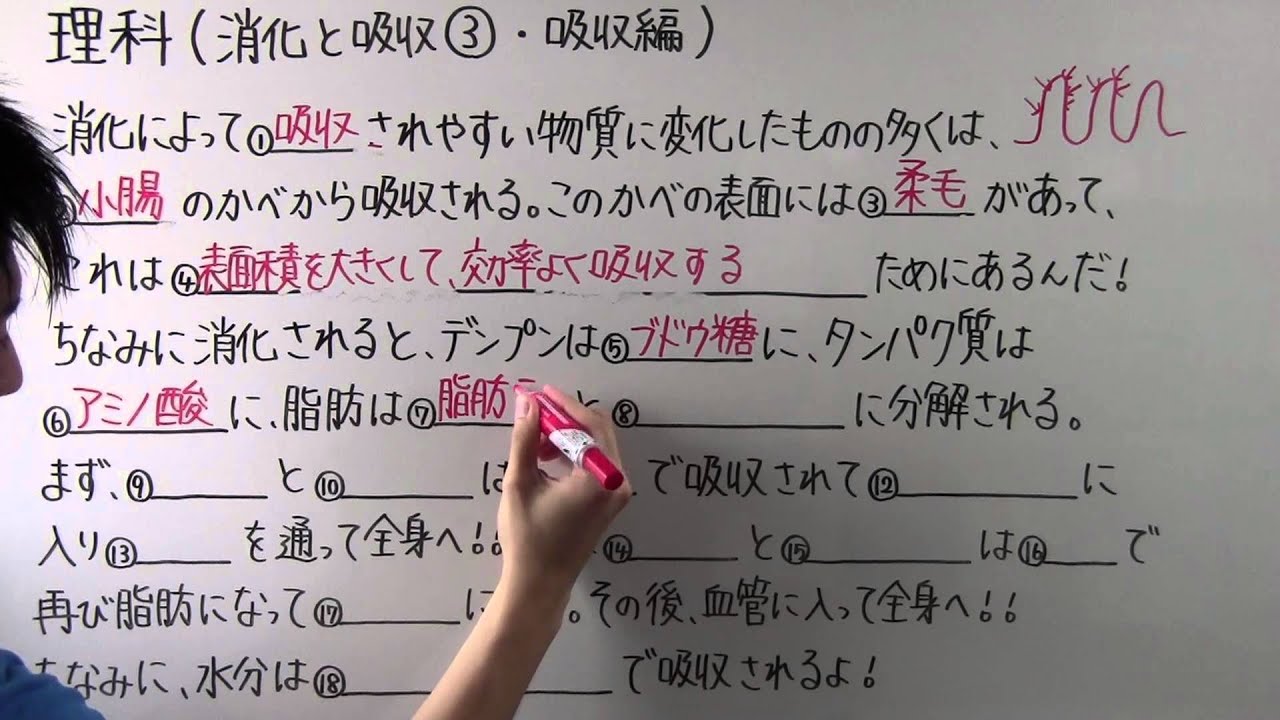 理科(消化と吸収③・吸収編)
消化によって①吸収されやすい物質に変化したものの多くは、
小腸のかべから吸収される。このかべの表面には③柔毛があって、
これは④表面積を大きくして、効率よく吸収するためにあるんだ!
ちなみに消化されると、デンプンは⑤ブドウ糖に、タンパク質は
⑥アミノ酸に、脂肪は⑦脂肪 と⑧ に分解される。
まず、⑨ と⑩ は で吸収されて⑫ に
入り⑬ を通って全身へ!! ⑭ と⑮ は⑯ で
再び脂肪になって⑰ に 。その後、血管に入って全身へ!!
なみに、水分は⑱ で吸収されるよ!